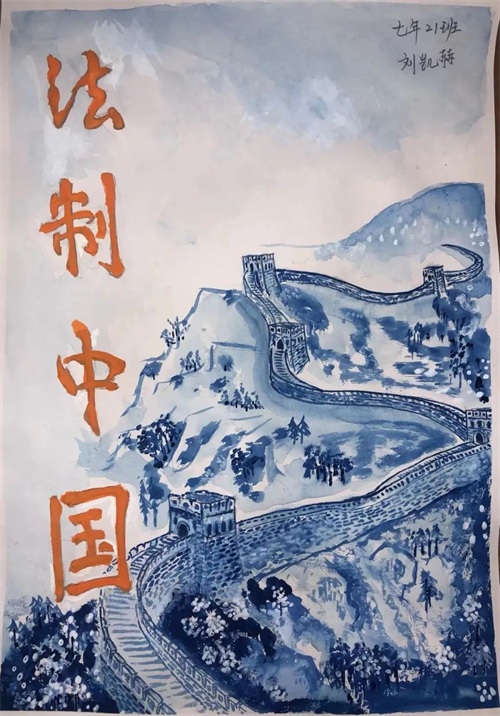 七年21班
刘凯赫
法制中国